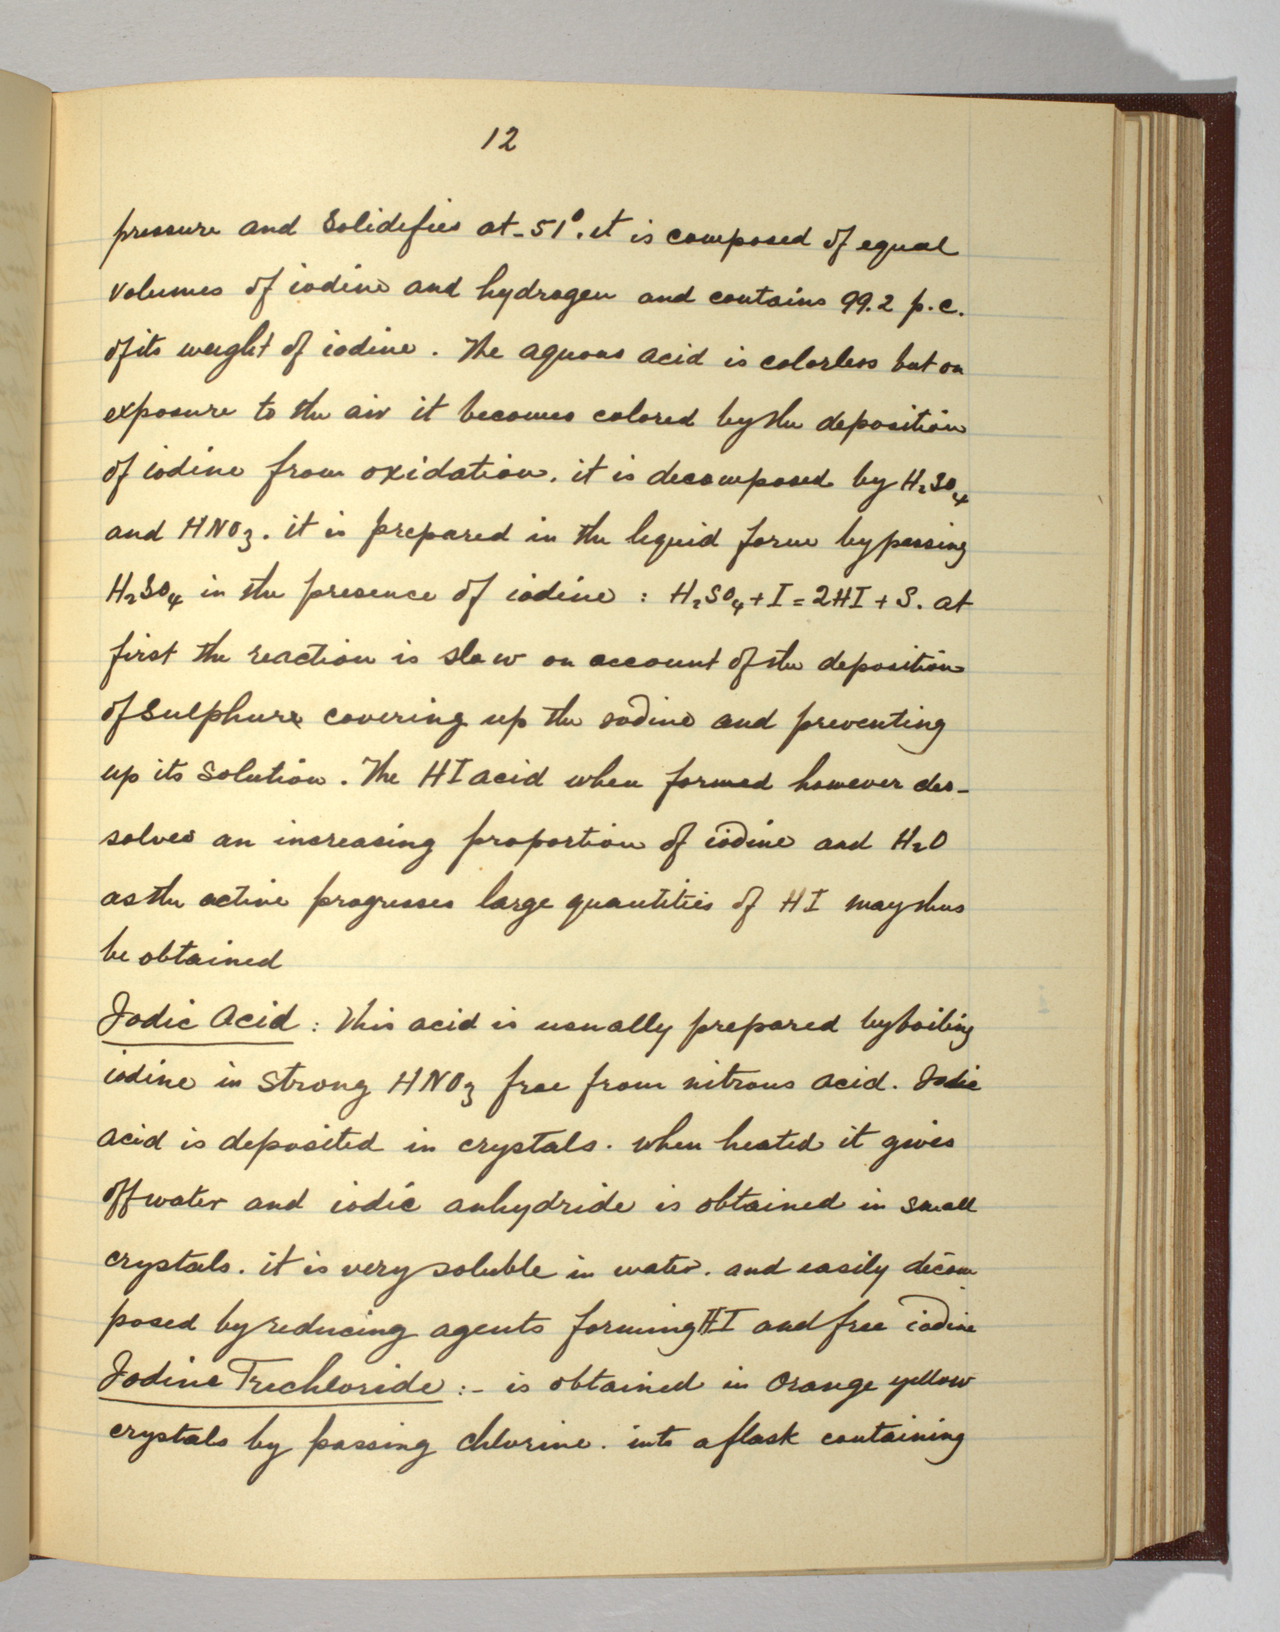 12
pressure and Solidifies at -51°. it is composed of equal
volumes of iodine and hydrogen and contains 99.2 p.c.
of its weight of iodine. The aquous acid is colorless but on
exposure to the air it becomes colored by the deposition
of iodine from oxidation. it is decomposed by H₂SO₄
and HNO₃. it is prepared in the liquid form by passing
H₂SO₄ in the presence of iodine : H₂SO₄ + I = 2HI + S. at
first the reaction is slow on account of the deposition
of Sulphure covering up the iodine and preventing
up its solution. The HI acid when formed however des-
solves an increasing proportion of iodine and H₂O
as the active progresses large quantities of HI may thus
be obtained
Iodic Acid : This acid is usually prepared by boiling
iodine in strong HNO₃ free from nitrous acid. Iodic
acid is deposited in crystals. when heated it gives
off water and iodic anhydride is obtained in small
crystals. it is very soluble in water. and easily decom
posed by reducing agents forming HI and free iodine
Iodine Trichloride :- is obtained in Orange yellow
crystals by passing chlorine. into a flask containing